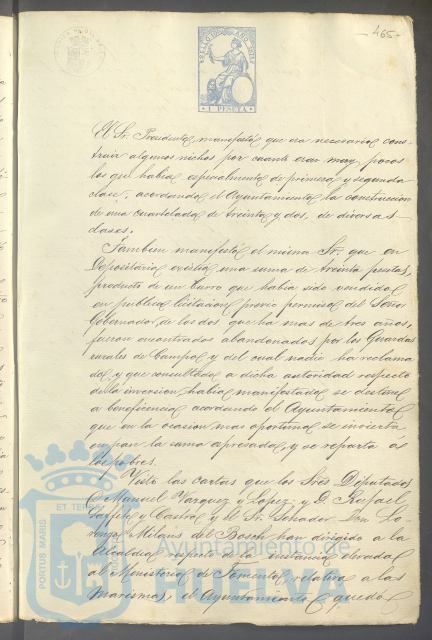 -465-
SELLO 11º AÑO 1881
1 PESETA
El Sr. Presidente, manifestó que era necesario cons-
truir algunos nichos por cuanto eran muy pocos
los que habia especialmente de primera y segunda
clase, acordando el Ayuntamiento la construccion
de una cuartelada de treinta y dos, de diversas
clases.
Tambien manifestó el mismo Sr. que en
Depositaria existia una suma de treinta pesetas,
producto de un burro que habia sido vendido
en publica licitacion previo permiso del Señor
Gobernador, de los dos que ha mas de tres años,
fueron encontrados abandonados por los Guardas
rurales de Campo y del cual nadie ha reclama
do, y que consultado a dicha autoridad respecto
de la inversion habia manifestado se destine
a beneficencia acordando el Ayuntamiento
que en la ocasion mas oportuna se invierta
en pan la suma apresada, y se reparta á
los pobres.
Visto las cartas que los Sres. Diputados
D. Manuel Vazquez y Lopez y D. Rafael
y Castro, y el Sr. Senador Don Lo-
renzo Milans del Bosch han dirigido a la
Alcaldia respecto a la instancia elevada
al Ministerio de Fomento, relativa a las
marismas, el Ayuntamiento quedó
PORTUS MARIS
ET TERRAE
Ayuntamiento de
HUELVA